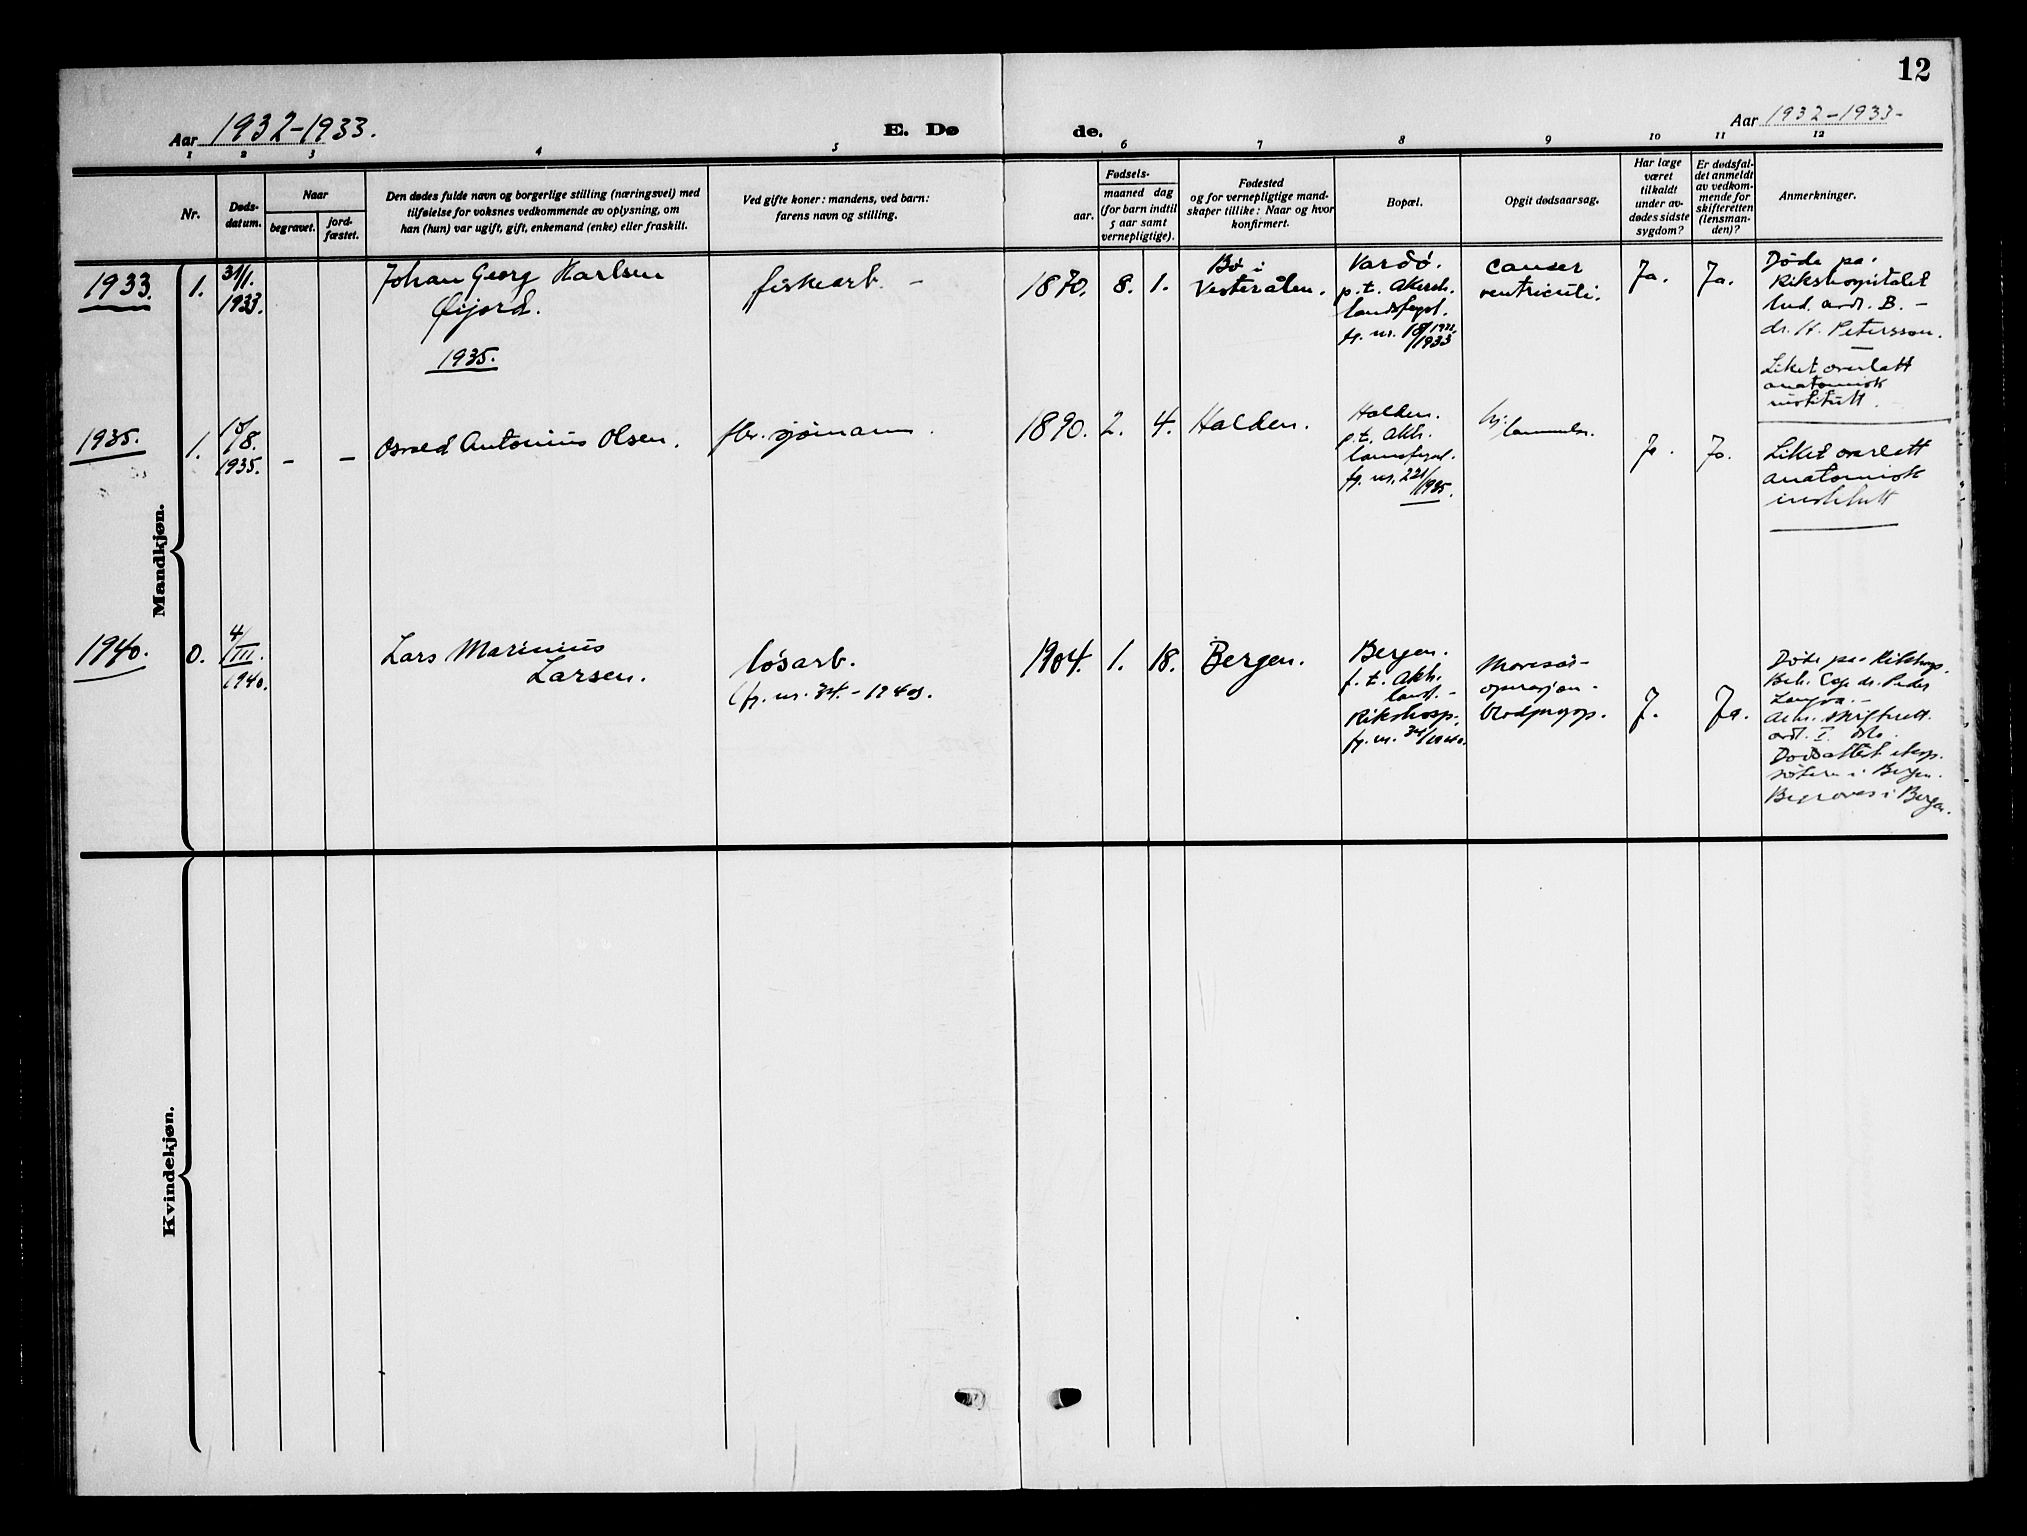 12
Aar 1932-1933.
E. Dø
de.
Aar 1932-1933-
1 2 3 4 5 6 7 8 9 10 11 12
Nr.
Døds-
datum.
Naar
begravet.
jord-
fæstet.
Den dødes fulde navn og borgerlige stilling (næringsvei) med
tilføielse for voksnes vedkommende av oplysning, om
han (hun) var ugift, gift, enkemand (enke) eller fraskilt.
Ved gifte koner: mandens, ved barn:
farens navn og stilling.
Fødsels-
aar.
maaned dag
(for barn indtil
5 aar samt
vernepligtige).
Fødested
og for vernepligtige mand-
skaper tillike: Naar og hvor
konfirmert.
Bopæl.
Opgit dødsaarsag.
Har læge
været
tilkaldt
under av-
dødes sidste
sygdom?
Er dødsfal-
det anmeldt
av vedkom-
mende for
skifteretten
(lensman-
den)?
Anmerkninger.
Mandkjøn.
1933.
1.
31/1.
1933.
Johan Georg Karlsen
Øijord.
fiskearb. -
1870.
8.
1.
Bø i
Vesterålen.
Vardø.
p.t. Akersh.
landsfgsl.
fg. nr.
/1933
cancer
ventriculi.
Ja.
Ja.
Døde på
Rikshospitalet
B. -
dr. H. Petersson.
Liket overlatt
anatomisk
institutt.
1935.
1935.
1.
/8.
1935.
-
-
Osvald Antonius Olsen.
fhv. sjømann.
1890.
2.
4.
Halden.
Halden.
p.t. Akh.
landsfgsl.
fg. nr. 221/
/1935.
Hj.
lammelse.
Ja.
Ja.
Liket overlatt
anatomisk
institutt
1940.
0.
4/
III.
1940.
Lars Marinius
Larsen.
løsarb.
(fg. nr. 34. - 1940).
1904.
1.
18.
Bergen.
Bergen.
p.t. Akh.
landsf. -
Rikshosp.
fg. nr. 34/1940.
Mavesår-
operasjon -
blodpropp.
J.
Ja.
Døde på Rikshosp.
dr. Peder
-
skifterett.
avd. I. Oslo.
Dødsattest
i Bergen.
Begraves i Bergen.
Kvindekjøn.